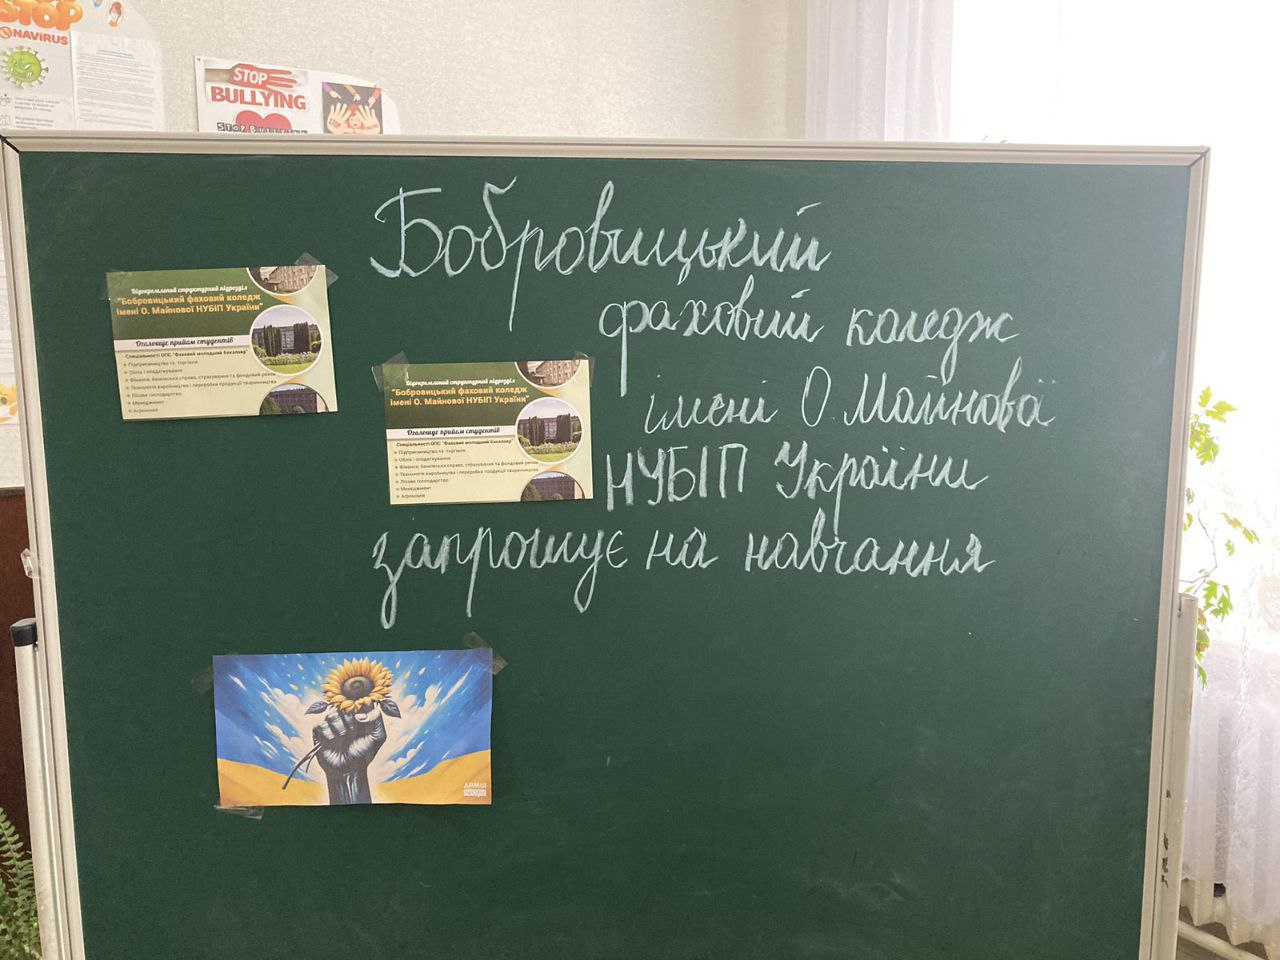 STOP
NAVIRUS
STOP
BULLYING
STOP BULLYING
Бобровицький
фаховий коледж
імені О Майнової
НУБІП України
запрошує на навчання
Відокремлений структурний підрозділ
"Бобровицький фаховий коледж
імені О. Майнової НУБІП України"
Оголошує прийом студентів
Спеціальності ОПС "Фаховий молодший бакалавр"
Підприємництво та торгівля
Облік і оподаткування
Фінанси, банківська справа, страхування та фондовий ринок
Технологія виробництва і переробка продукції тваринництва
Лісове господарство
Менеджмент
Агрономія
Відокремлений структурний підрозділ
"Бобровицький фаховий коледж
імені О. Майнової НУБІП України"
Оголошує прийом студентів
Спеціальності ОПС "Фаховий молодший бакалавр"
Підприємництво та торгівля
Облік і оподаткування
Фінанси, банківська справа, страхування та фондовий ринок
Технологія виробництва і переробка продукції тваринництва
Лісове господарство
Менеджмент
Агрономія
АРМІЯ